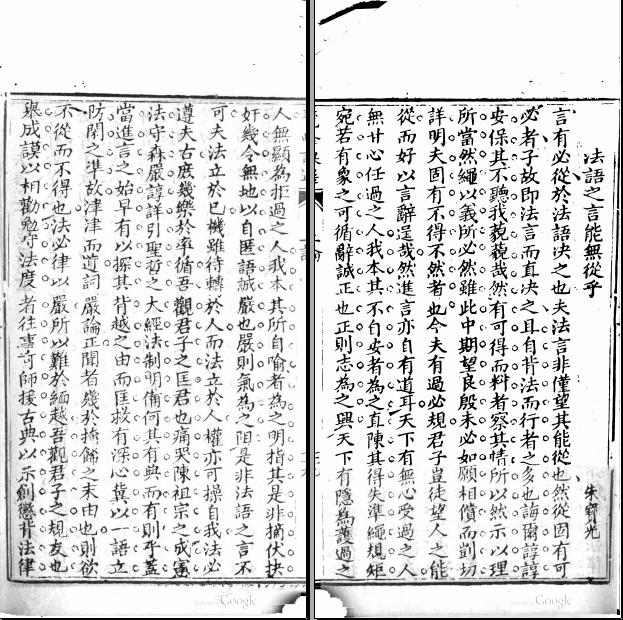 法語之言能無從乎
朱寶光
言有必從於法語決之也夫法言非僅望其能從也然從固有可
必者子故即法言而直決之且自背法而行者之多也誨爾諄諄
安保其不聽我藐藐哉然有可得而料者察其情所以然示以理
所當然繩以義所必然雖此中期望良殷未必如願相償而剴切
詳明夫固有不得不然者也今夫有過必規君子豈徒望人之能
從而好以言辭逞哉然進言亦自有道耳天下有無心受過之人
無甘心任過之人我本其不自安者為之直陳其得失準繩規矩
宛若有象之可循辭誠正也正則志為之興天下有隱為護過之
人無顯為拒過之人我本其所自喻者為之明指其是非摘伏抉
奸幾令無地以自匿語誠嚴也嚴則氣為之阻是非法語之言不
可夫法立於己機雖待轉於人而法立於人權亦可操自我法必
遵夫古庶幾樂於率循吾觀君子之匡君也痛哭陳祖宗之成憲
法守森嚴諄詳引聖哲之大經法制明備何其有典而有則乎蓋
當進言之始早有以探其背越之由而匡救有深心冀以一語立
防閑之準故津津而道詞嚴論正聞者幾於撿飾之末由也則欲
不從而不得也法必律以嚴所以難於緬越吾觀君子之規友也
舉成謨以相勸勉守法度者往事奇師援古典以示創懲背法律
Google
Google